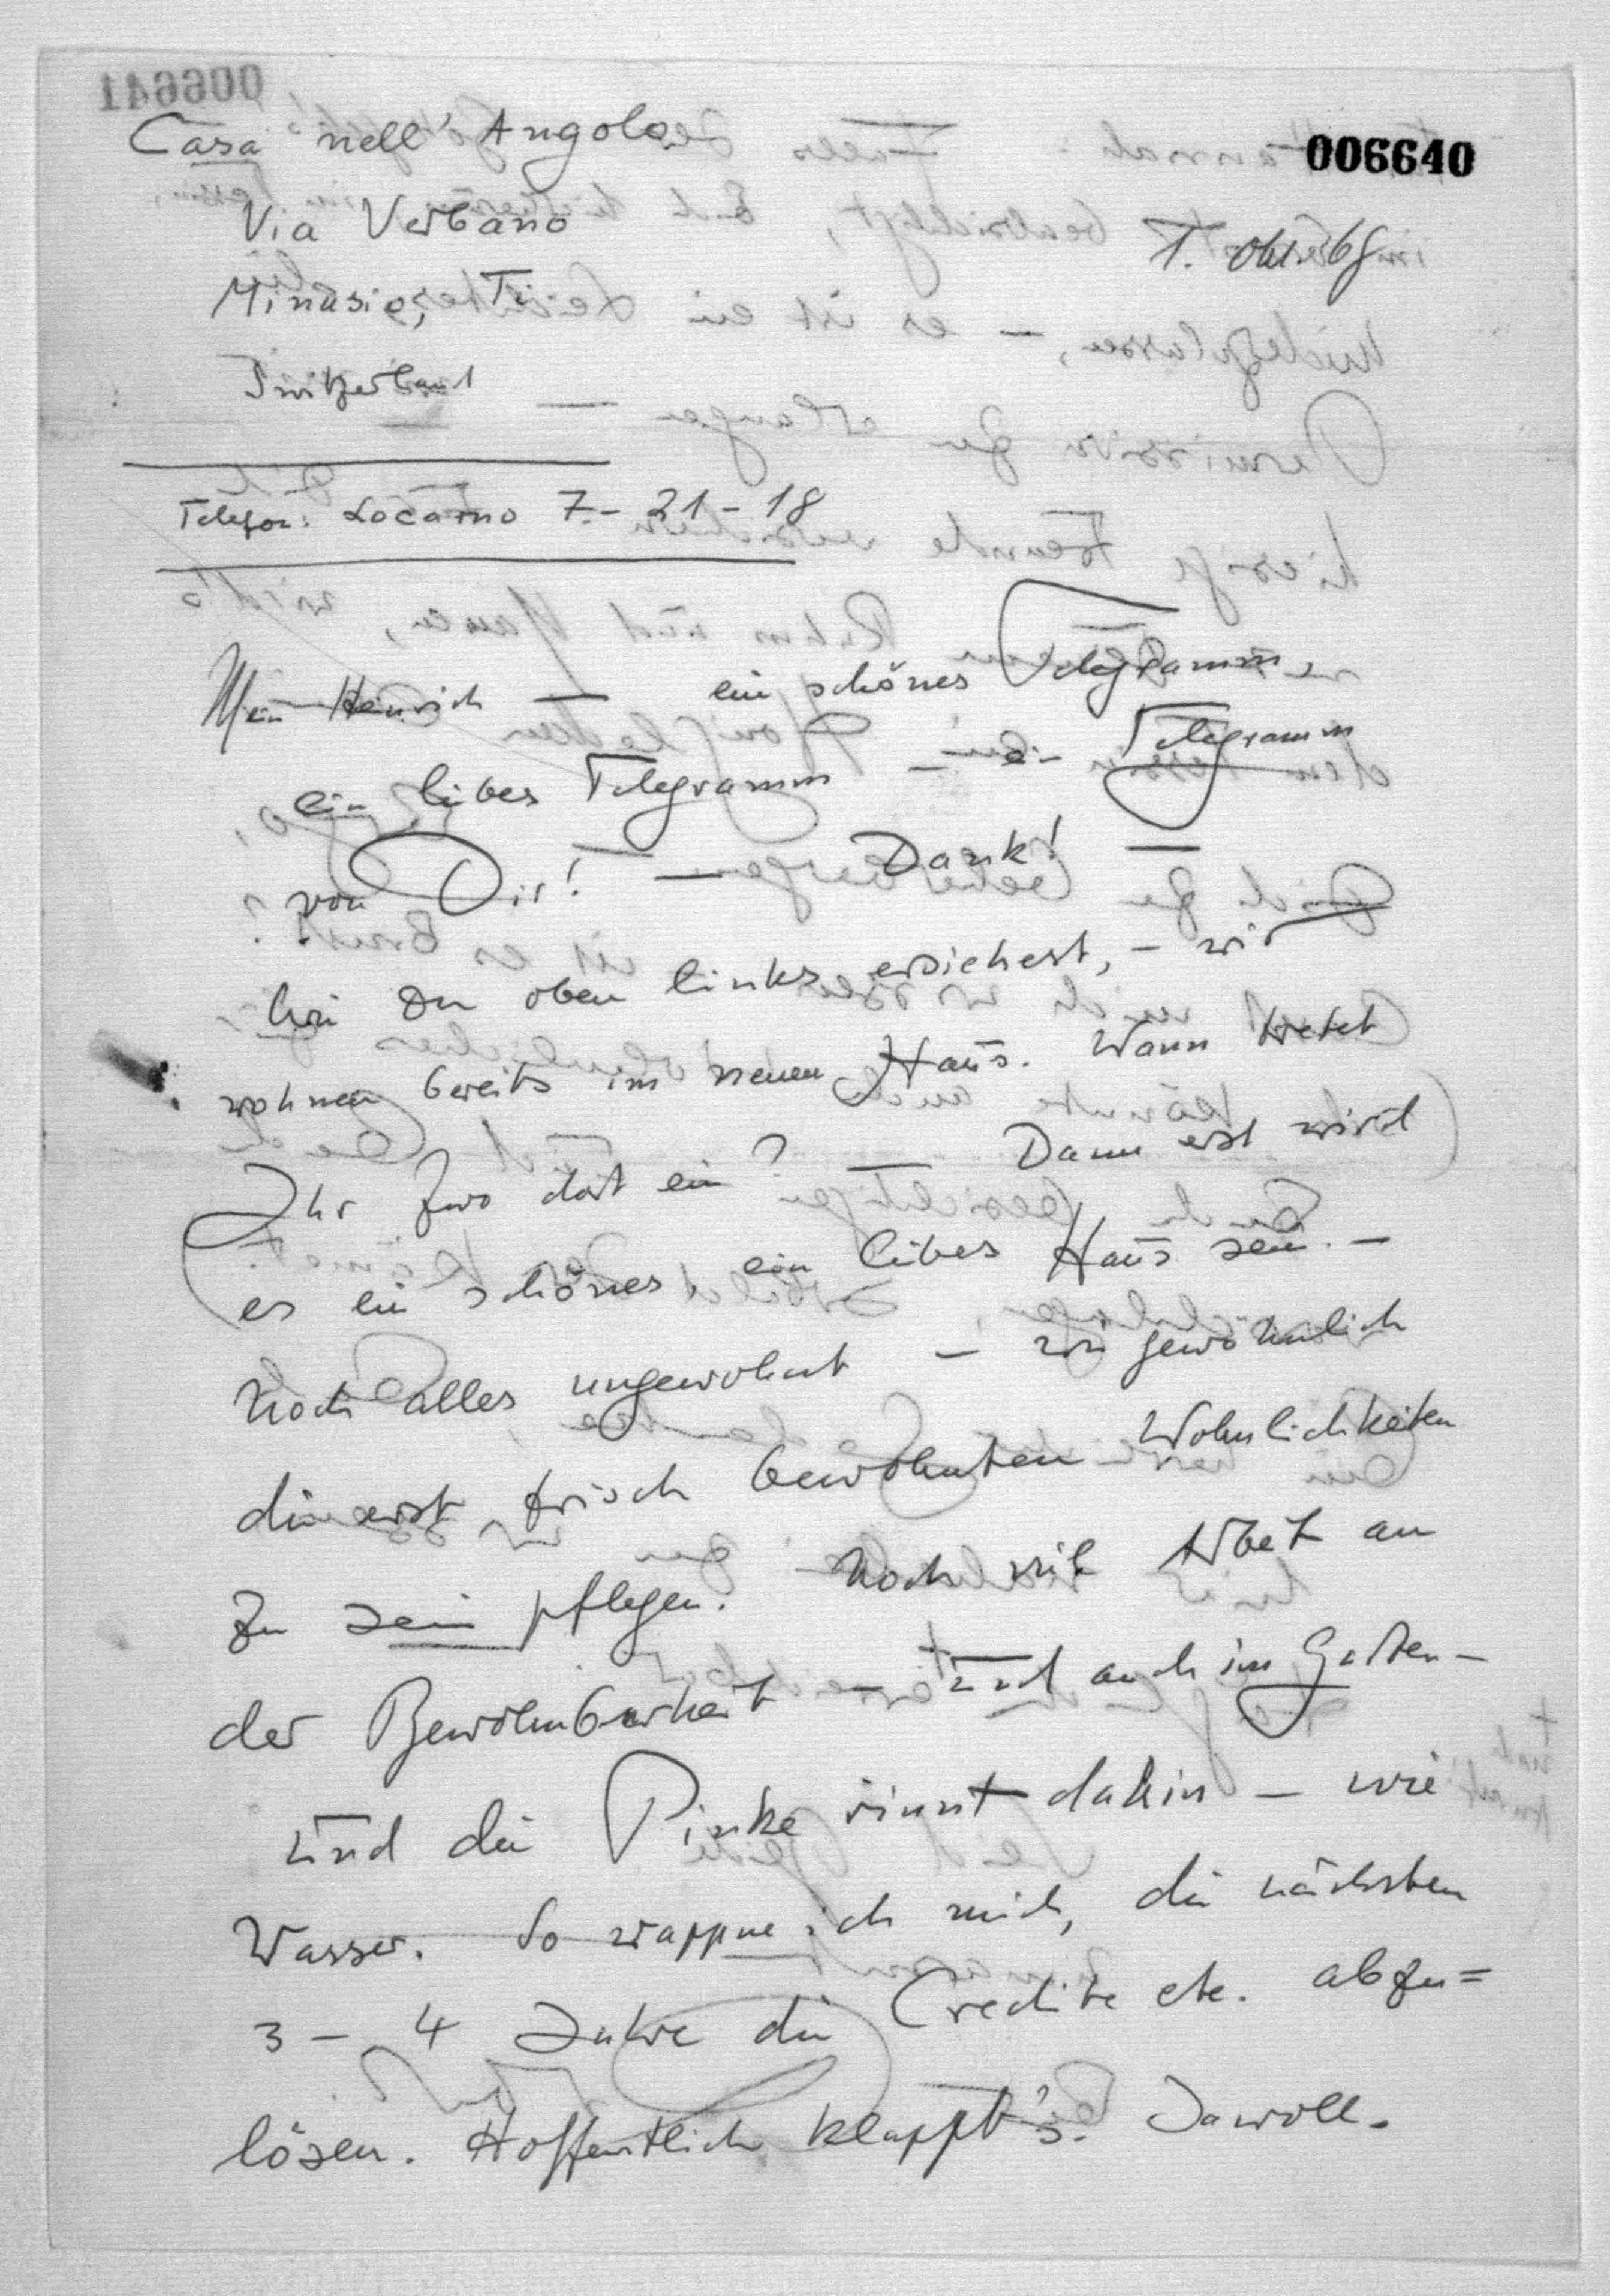 006640
Casa nell' Angolo
Via Verbano
1. Okt. 68
Minusio, Ti
Switzerland
Telefon: Locarno 7-21-18
Mein Heinrich — ein schönes Telegramm,
ein liebes Telegramm — ein Telegramm
von Dir! — Dank! —
Wie Du oben links ersichest, – wir
wohnen bereits im neuen Haus. Wann tretet
Ihr zwo dort ein? — Dann erst wird
es ein schönes, ein liebes Haus sein. –
Noch alles ungewohnt – wie gewöhnlich
die erst frisch bewohnten Wohnlichkeiten
zu sein pflegen. Noch viel Arbeit an
der Bewohnbarkeit – und auch im Garten –
und die Pinke rinnt dahin – wie
Wasser. So wappne ich mich, die nächsten
3 – 4 Jahre die Credite etc. abzu=
lösen. Hoffentlich klappt's. Jawoll.